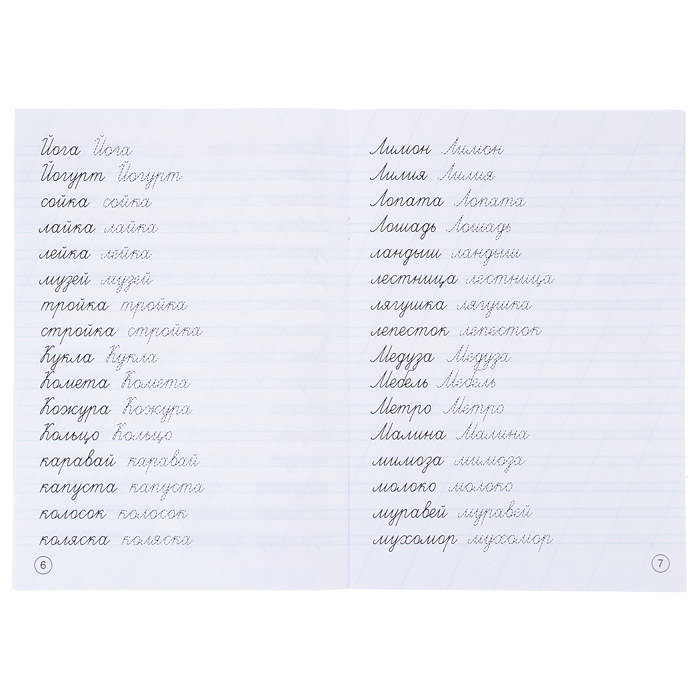 Йога Йога
Йогурт Йогурт
сойка сойка
лайка лайка
лейка лейка
музей музей
тройка тройка
стройка стройка
Кукла Кукла
Комета Комета
Кожура Кожура
Кольцо Кольцо
каравай каравай
капуста капуста
колосок колосок
коляска коляска
6
Лимон Лимон
Лилия Лилия
Лопата Лопата
Лошадь Лошадь
ландыш ландыш
лестница лестница
лягушка лягушка
лепесток лепесток
Медуза Медуза
Мебель Мебель
Метро Метро
Малина Малина
мимоза мимоза
молоко молоко
муравей муравей
мухомор мухомор
7